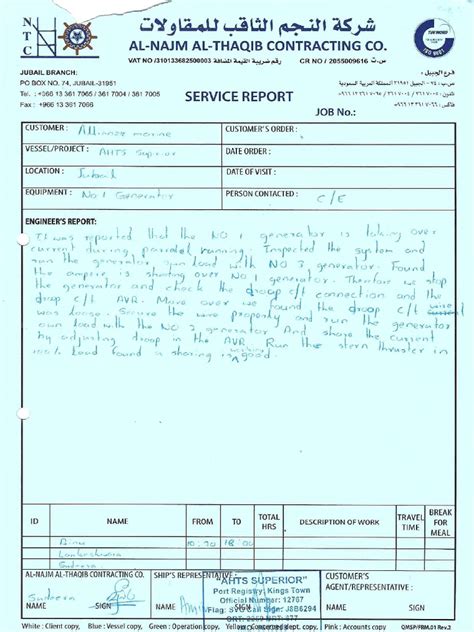 N
T
C
شركة النجم الثاقب للمقاولات
AL-NAJM AL-THAQIB CONTRACTING CO.
VAT NO /310133682500003 رقم ضريبة القيمة المضافة CR NO / 2055009616 س.ت
TUV NORD
ISO 9001
JUBAIL BRANCH:
PO BOX NO. 74, JUBAIL-31951
Tel. : +966 13 361 7065 / 361 7004 / 361 7005
Fax : +966 13 361 7066
فرع الجبيل :
SERVICE REPORT
JOB No.:
CUSTOMER : Alliance marine
CUSTOMER'S ORDER :
VESSEL/PROJECT : AHTS Superior
DATE ORDER :
LOCATION : Jubail
DATE OF VISIT :
EQUIPMENT : No 1 Generator
PERSON CONTACTED : C/E
ENGINEER'S REPORT:
It was reported that the NO 1 generator is taking over
current during parrelel running. Inspected the system and
run the generator, own load with NO 2 generator. Found
the ampire is shooting over NO 1 generator. Therefore we stop
the generator and check the droop c/t connection and the
droop c/t AVR. More over we found the droop c/t wire
was loose. Secure the wire properly and run the generator
own load with the NO 2 generator And share the current
by adjusting droop in the AVR. Run the stern thruster in
100% load found a sharing is working good.
ID NAME FROM TO TOTAL HRS DESCRIPTION OF WORK TRAVEL TIME BREAK FOR MEAL
Binu
Sudeera
AL-NAJM AL-THAQIB CONTRACTING CO.
SHIP'S REPRESENTATIVE :
CUSTOMER'S AGENT/REPRESENTATIVE :
"AHTS SUPERIOR"
Port Registry: Kings Town
Official Number: 12767
Flag: SVG Call Sign: J8B6294
Sudeera
NAME SIGN
NAME SIGN
NAME SIGN
White : Client copy, Blue : Vessel copy, Green : Operation copy, Yellow : Concerned dept. copy, Pink : Accounts copy QMSP/FRM.01 Rev.2